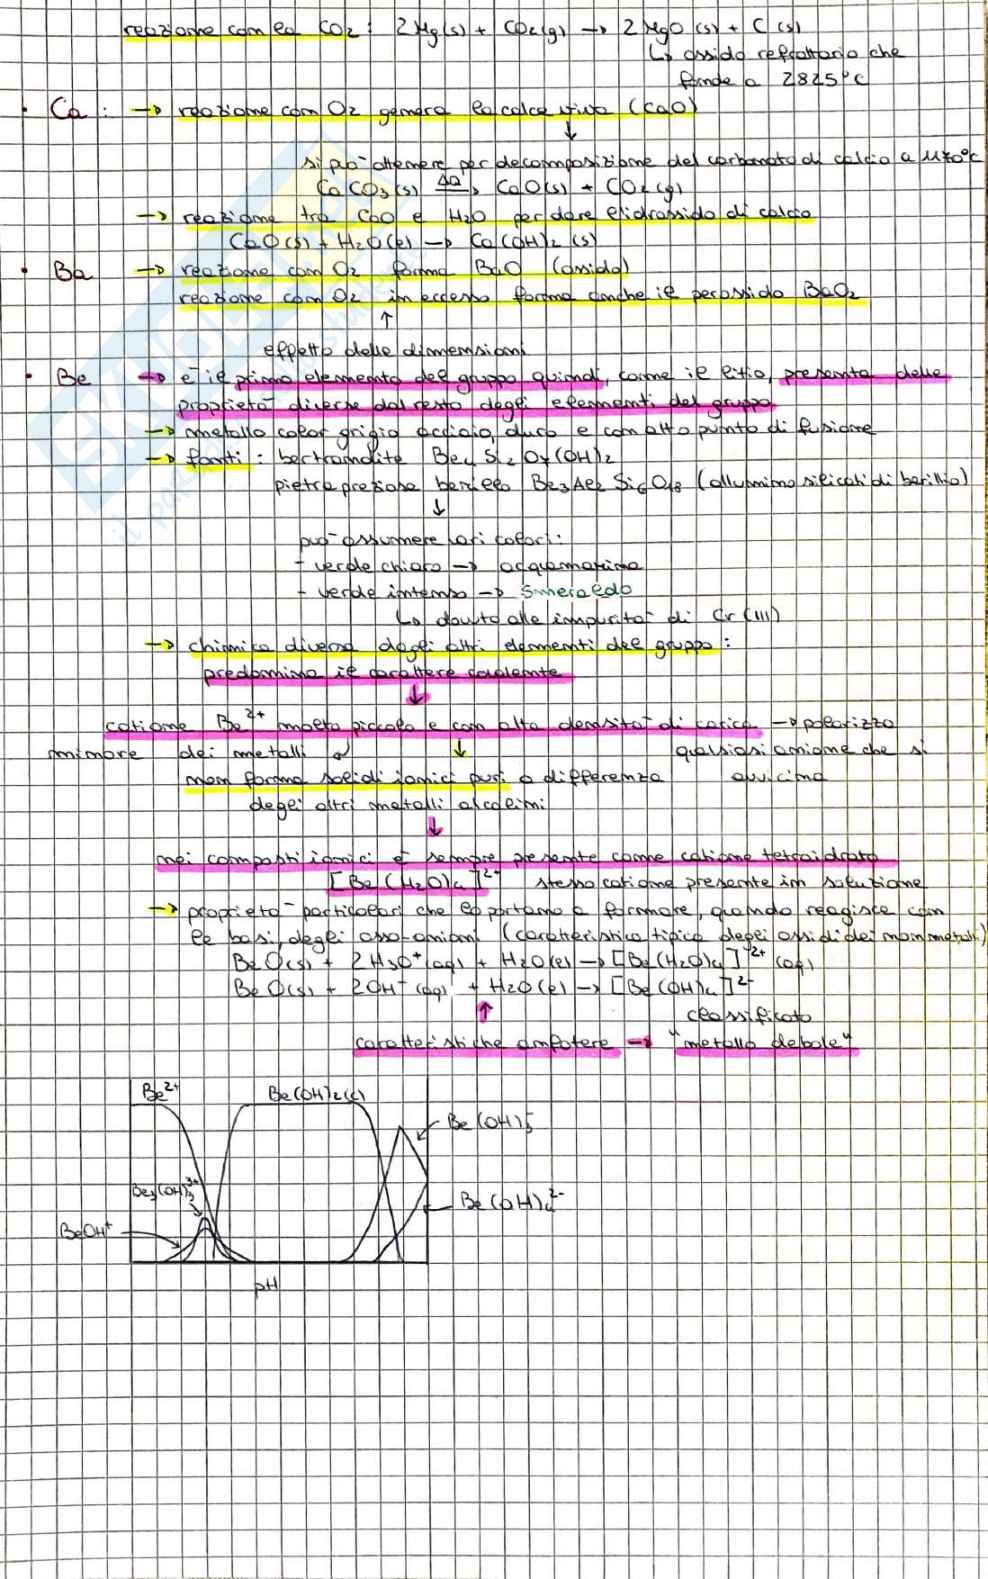 reazione con la CO₂ : 2Mg(s) + CO₂(g) → 2MgO(s) + C(s)
↳ ossido refrattario che
fonde a 2825°C
• Ca : → reazione con O₂ genera la calce viva (CaO)
↓
si può ottenere per decomposizione del carbonato di calcio a 1170°C
CaCO₃(s) → CaO(s) + CO₂(g)
→ reazione tra CaO e H₂O per dare l'idrossido di calcio
CaO(s) + H₂O(l) → Ca(OH)₂(s)
• Ba → reazione con O₂ forma BaO (ossido)
reazione con O₂ in eccesso forma anche il perossido BaO₂
↑
effetto delle dimensioni
• Be → è il primo elemento del gruppo quindi, come il litio, presenta delle
proprietà diverse dal resto degli elementi del gruppo
→ metallo color grigio acciaio, duro e con alto punto di fusione
→ fonti : bertrandite Be₄Si₂O₇(OH)₂
pietra preziosa berillo Be₃Al₂Si₆O₁₈ (allumino silicati di berillio)
↓
può assumere vari colori:
- verde chiaro → acquamarina
- verde intenso → smeraldo
↳ dovuto alle impurità di Cr(III)
→ chimica diversa dagli altri elementi del gruppo :
predomina il carattere covalente
↓
catione Be²⁺ molto piccolo e con alta densità di carica → polarizza
minore dei metalli ↓ qualsiasi anione che si
non forma solidi ionici puri a differenza avvicina
degli altri metalli alcalini
↓
nei composti ionici è sempre presente come catione tetraidrato
[Be(H₂O)₄]²⁺ stesso catione presente in soluzione
→ proprietà particolari che lo portano a formare, quando reagisce con
le basi, degli osso-anioni (caratteristica tipica degli ossidi dei non metalli)
BeO(s) + 2H₃O⁺(aq) + H₂O(l) → [Be(H₂O)₄]²⁺(aq)
BeO(s) + 2OH⁻(aq) + H₂O(l) → [Be(OH)₄]²⁻
↑ classificato
caratteristiche anfotere → "metallo debole"
Be²⁺ Be(OH)₂(s)
Be(OH)₃⁻
Be₃(OH)₃³⁺
Be(OH)₄²⁻
BeOH⁺
pH